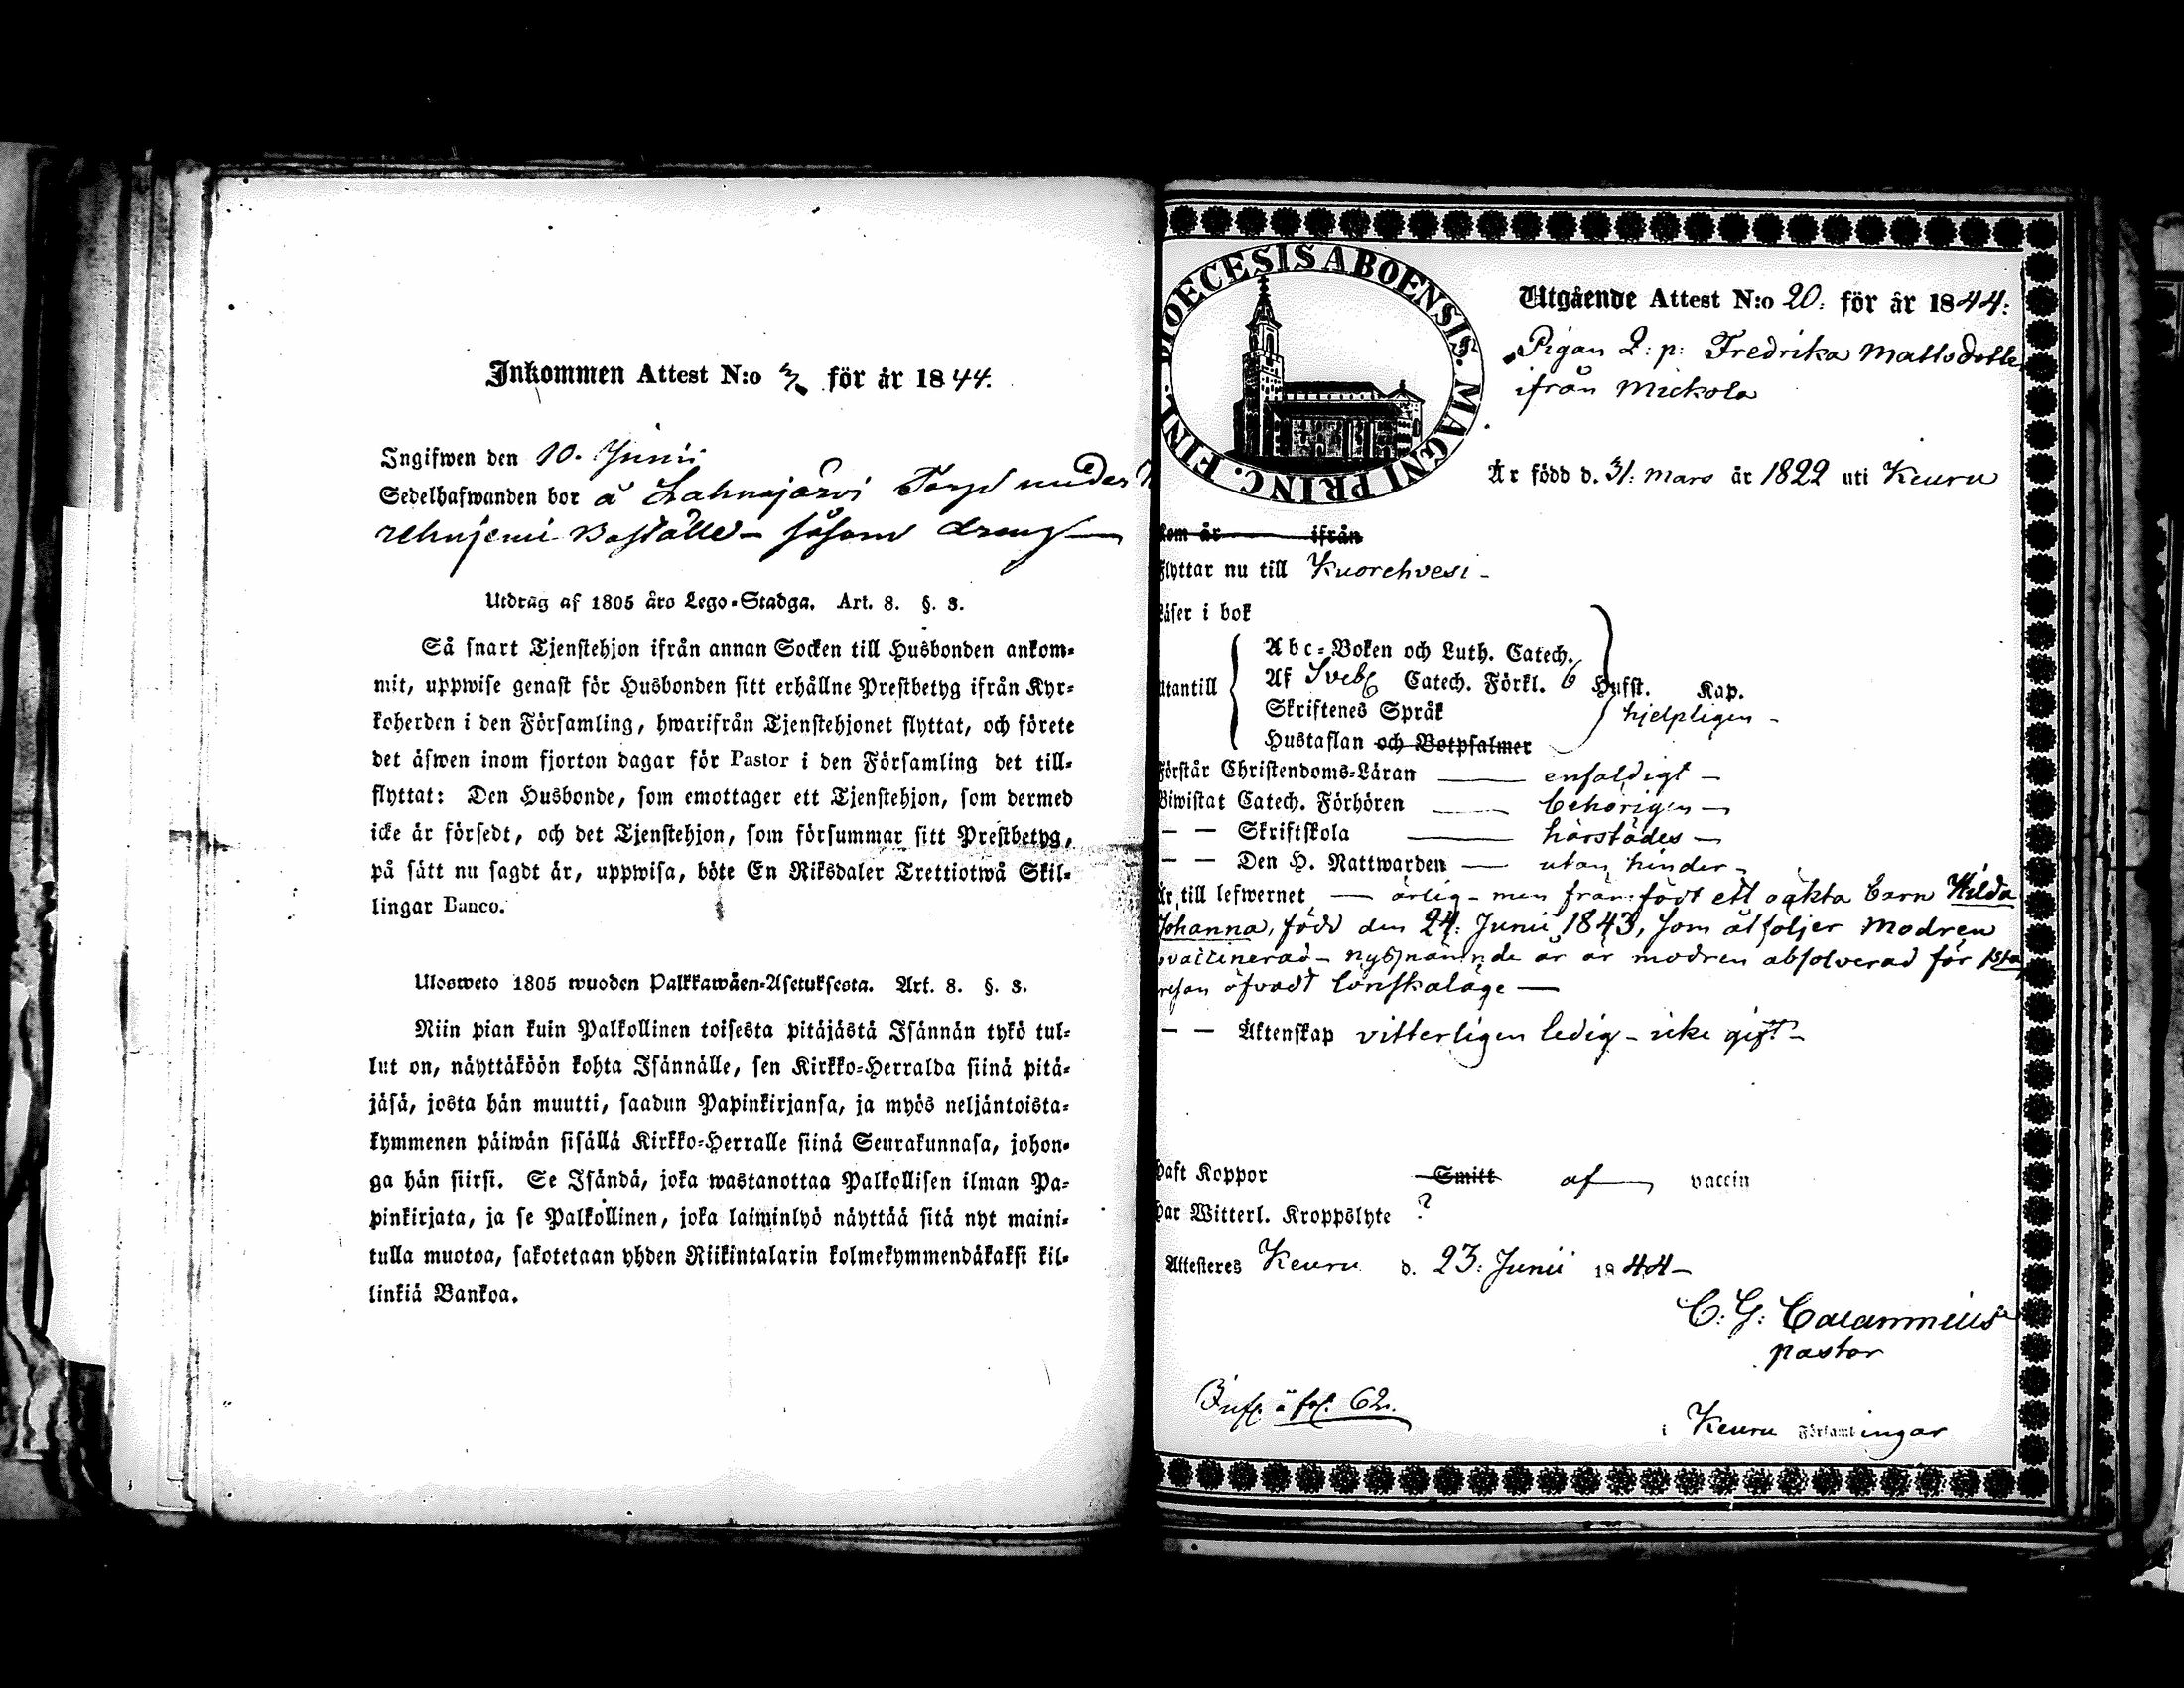 Inkommen Attest N:o för år 1844.
Ingifwen den 10. Junii
Sedelhafwanden bor å Lahnajärvi Torp under
Boställe – såsom dräng –
Utdrag af 1805 års Lego-Stadga. Art. 8. §. 3.
Så snart Tjenstehjon ifrån annan Socken till Husbonden ankom-
mit, uppwise genast för Husbonden sitt erhållne Prestbetyg ifrån Kyr-
koherden i den Församling, hwarifrån Tjenstehjonet flyttat, och förete
det äfwen inom fjorton dagar för Pastor i den Församling det till-
flyttat: Den Husbonde, som emottager ett Tjenstehjon, som dermed
icke är försedt, och det Tjenstehjon, som försummar sitt Prestbetyg,
på sätt nu sagdt är, uppwisa, böte En Riksdaler Trettiotwå Skil-
lingar Banco.
Ulosweto 1805 wuoden Palkkawäen-Asetuksesta. Art. 8. §. 3.
Niin pian kuin Palkollinen toisesta pitäjästä Isännän tykö tul-
lut on, näyttäköön kohta Isännälle, sen Kirkko-Herralda siinä pitä-
jäsä, josta hän muutti, saadun Papinkirjansa, ja myös neljäntoista-
kymmenen päiwän sisällä Kirkko-Herralle siinä Seurakunnasa, johon-
ga hän siirsi. Se Isändä, joka wastanottaa Palkollisen ilman Pa-
pinkirjata, ja se Palkollinen, joka laiminlyö näyttää sitä nyt maini-
tulla muotoa, sakotetaan yhden Riikintalarin kolmekymmendäkaksi kil-
linkiä Bankoa.
DIOECESIS ABOENSIS. MAGNI PRINC. FINL.
Utgående Attest N:o 20: för år 1844:
Pigan Q: p: Fredrika Mattsdotter
ifrån Mickola
Är född d. 31: Mars år 1822 uti Keuru
kom år ifrån
Flyttar nu till Kuorehvesi –
Läser i bok
Utantill
Abc-Boken och Luth. Catech.
Af Sveb. Catech. Förkl. 6 Hufst. Kap.
Skriftenes Språk hjelpligen –
Hustaflan och Botpsalmer
Förstår Christendoms-Läran — enfaldigt –
Biwistat Catech. Förhören — behörigen –
– – Skriftskola — härstädes –
– – Den H. Nattwarden — utan hinder –
Är till lefwernet — ärlig – men framfödt ett oäkta barn Hilda
Johanna, född den 24: Junii 1843, som åtföljer Modren
ovaccinerad – nysnämnde år är modren absolverad för 1sta
resan öfvadt lönskaläge —
– – Äktenskap vitterligen ledig – icke gift –
Haft Koppor Smitt af vaccin
Har Witterl. Kroppslyte ?
Attesteres Keuru d. 23: Junii 1844 –
C: G: Calamnius
pastor
i Keuru Församlingar
Infl. å fol. 62.